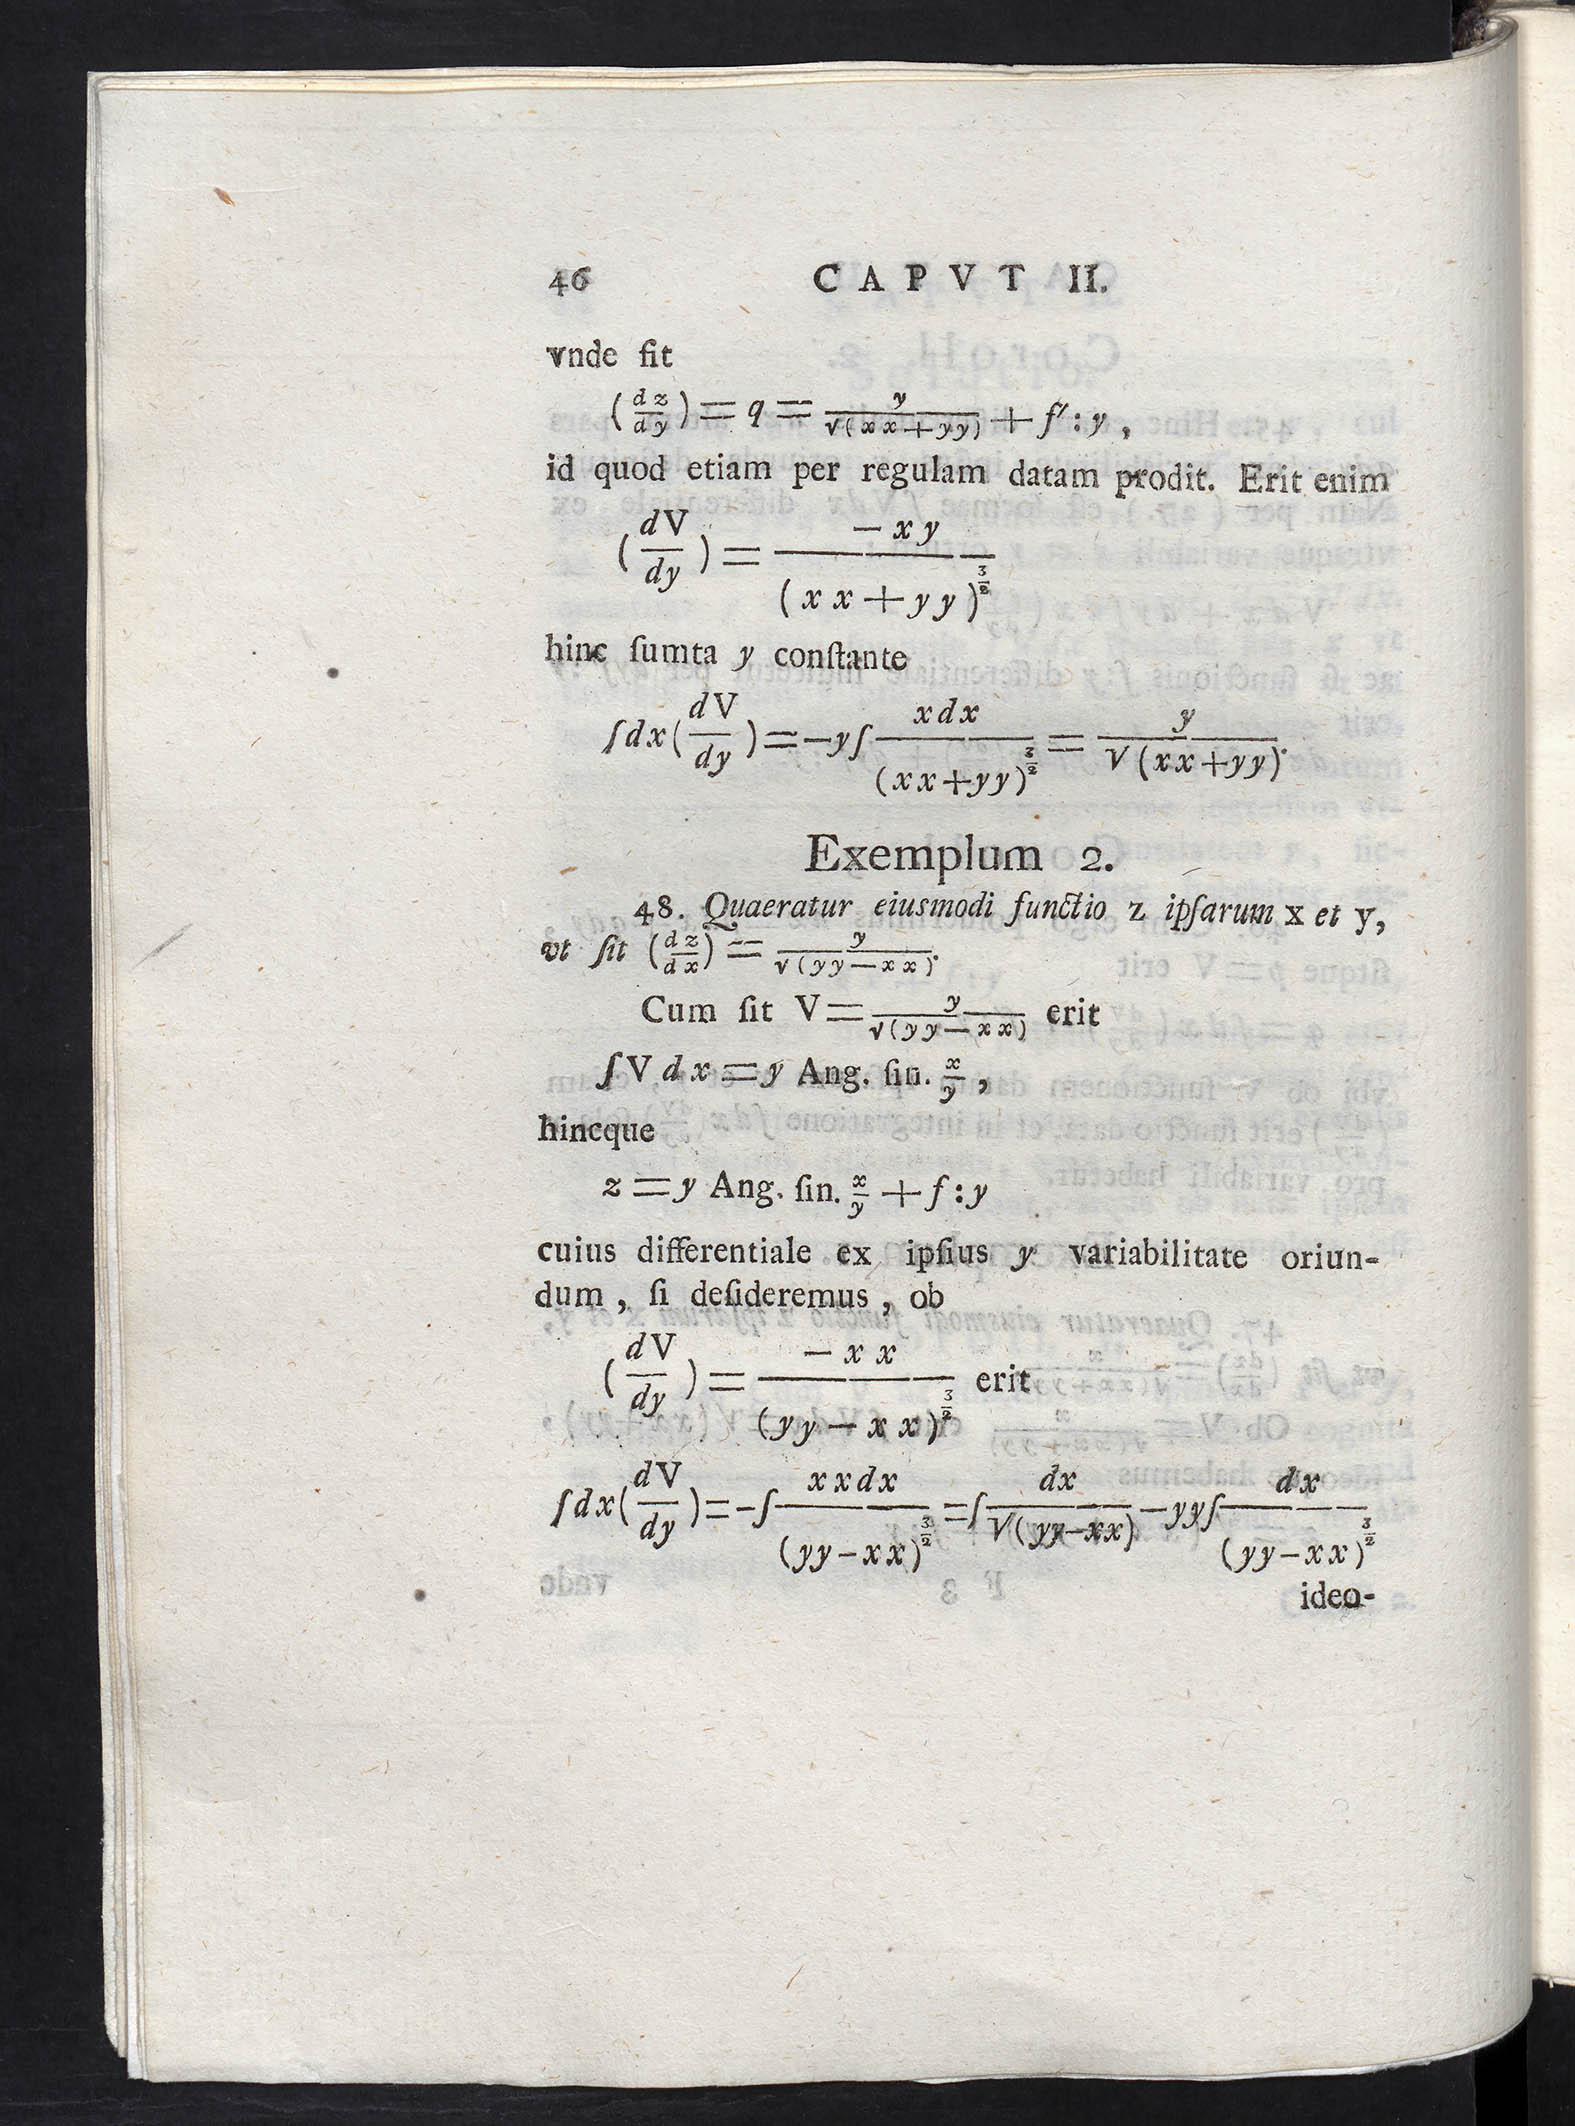 46 CAPVT II.
vnde fit
(dz/dy) = q = y/√(xx+yy) + f′:y ,
id quod etiam per regulam datam prodit. Erit enim
(dV/dy) = −xy/(xx+yy)^(3/2)
hinc ſumta y conſtante
∫dx(dV/dy) = −y∫ xdx/(xx+yy)^(3/2) = y/√(xx+yy).
Exemplum 2.
48. Quaeratur eiusmodi functio z ipſarum x et y,
vt ſit (dz/dx) = y/√(yy−xx).
Cum ſit V = y/√(yy−xx) erit
∫V dx = y Ang. ſin. x/y ,
hincque
z = y Ang. ſin. x/y + f:y
cuius differentiale ex ipſius y variabilitate oriun-
dum , ſi deſideremus , ob
(dV/dy) = −xx/(yy−xx)^(3/2) erit
∫dx(dV/dy) = −∫ xxdx/(yy−xx)^(3/2) = ∫ dx/√(yy−xx) − yy∫ dx/(yy−xx)^(3/2)
ideo-